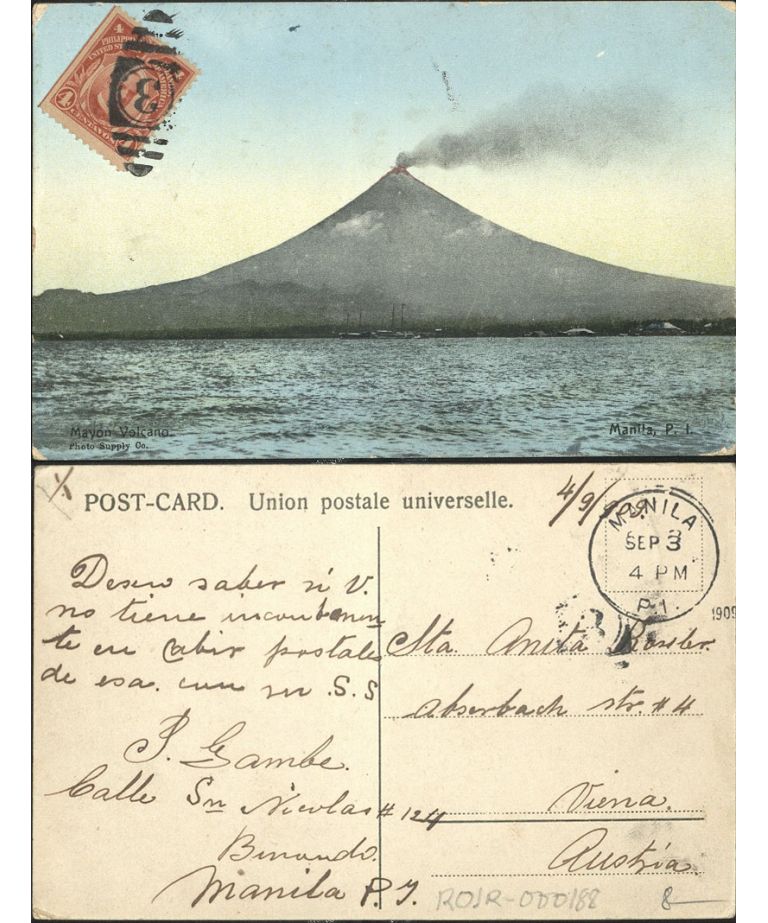 4
PHILIPPINE
UNITED STATES
4
CENTAVOS
3
Mayon Volcano.
Photo Supply Co.
Manila, P. I.
POST-CARD. Union postale universelle.
4/9/909.
MANILA
SEP 3
4 PM
P.I.
1909
Deseo saber si V.
no tiene
te en postales
de esa. con su S.S
P. Gambe.
Calle Sn Nicolas # 124
Binondo.
Manila P. I.
Sta. Anita Rossler.
Abserbach str. # 4
Viena.
Austria.
ROJR-000188
8